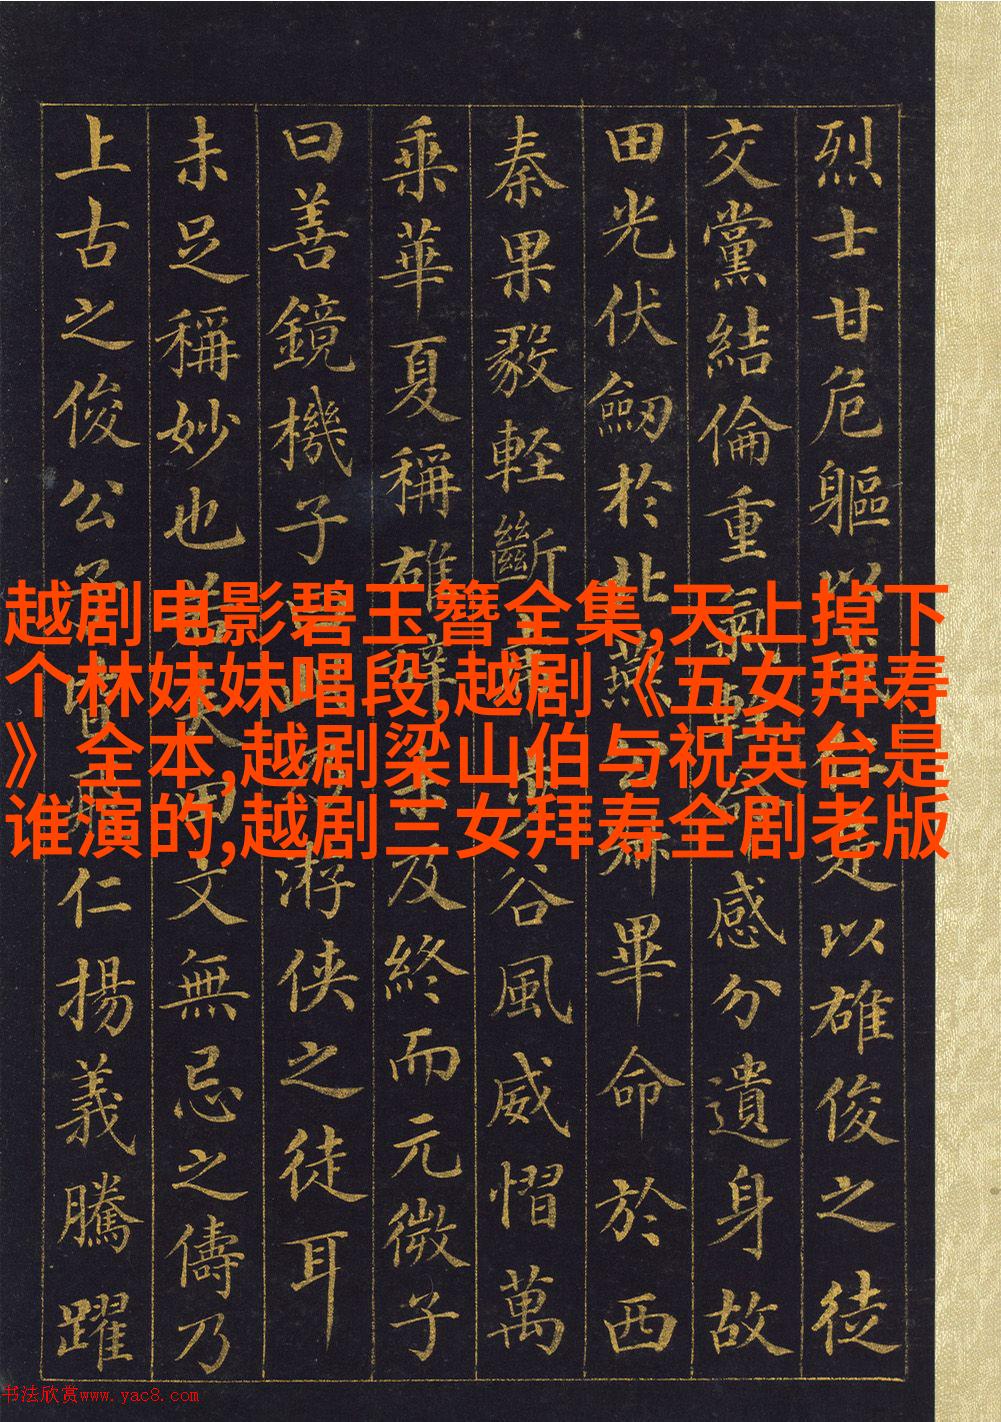 烈士甘危軀以是以雄俊之徒
交黨結倫重氣輕命感分遺身故
田光伏劒於北燕公畢命於西
秦果毅輕斷虎步谷風威慴萬
乘華夏稱雄辭未及終而元微子
曰善鏡機子曰此乃游俠之徒耳
未足稱妙也若夫田文無忌之儔乃
上古之俊公子也皆飛仁揚義騰躍
越剧电影碧玉簪全集,天上掉下
个林妹妹唱段,越剧《五女拜寿
》全本,越剧梁山伯与祝英台是
谁演的,越剧三女拜寿全剧老版
书法欣赏www.yac8.com